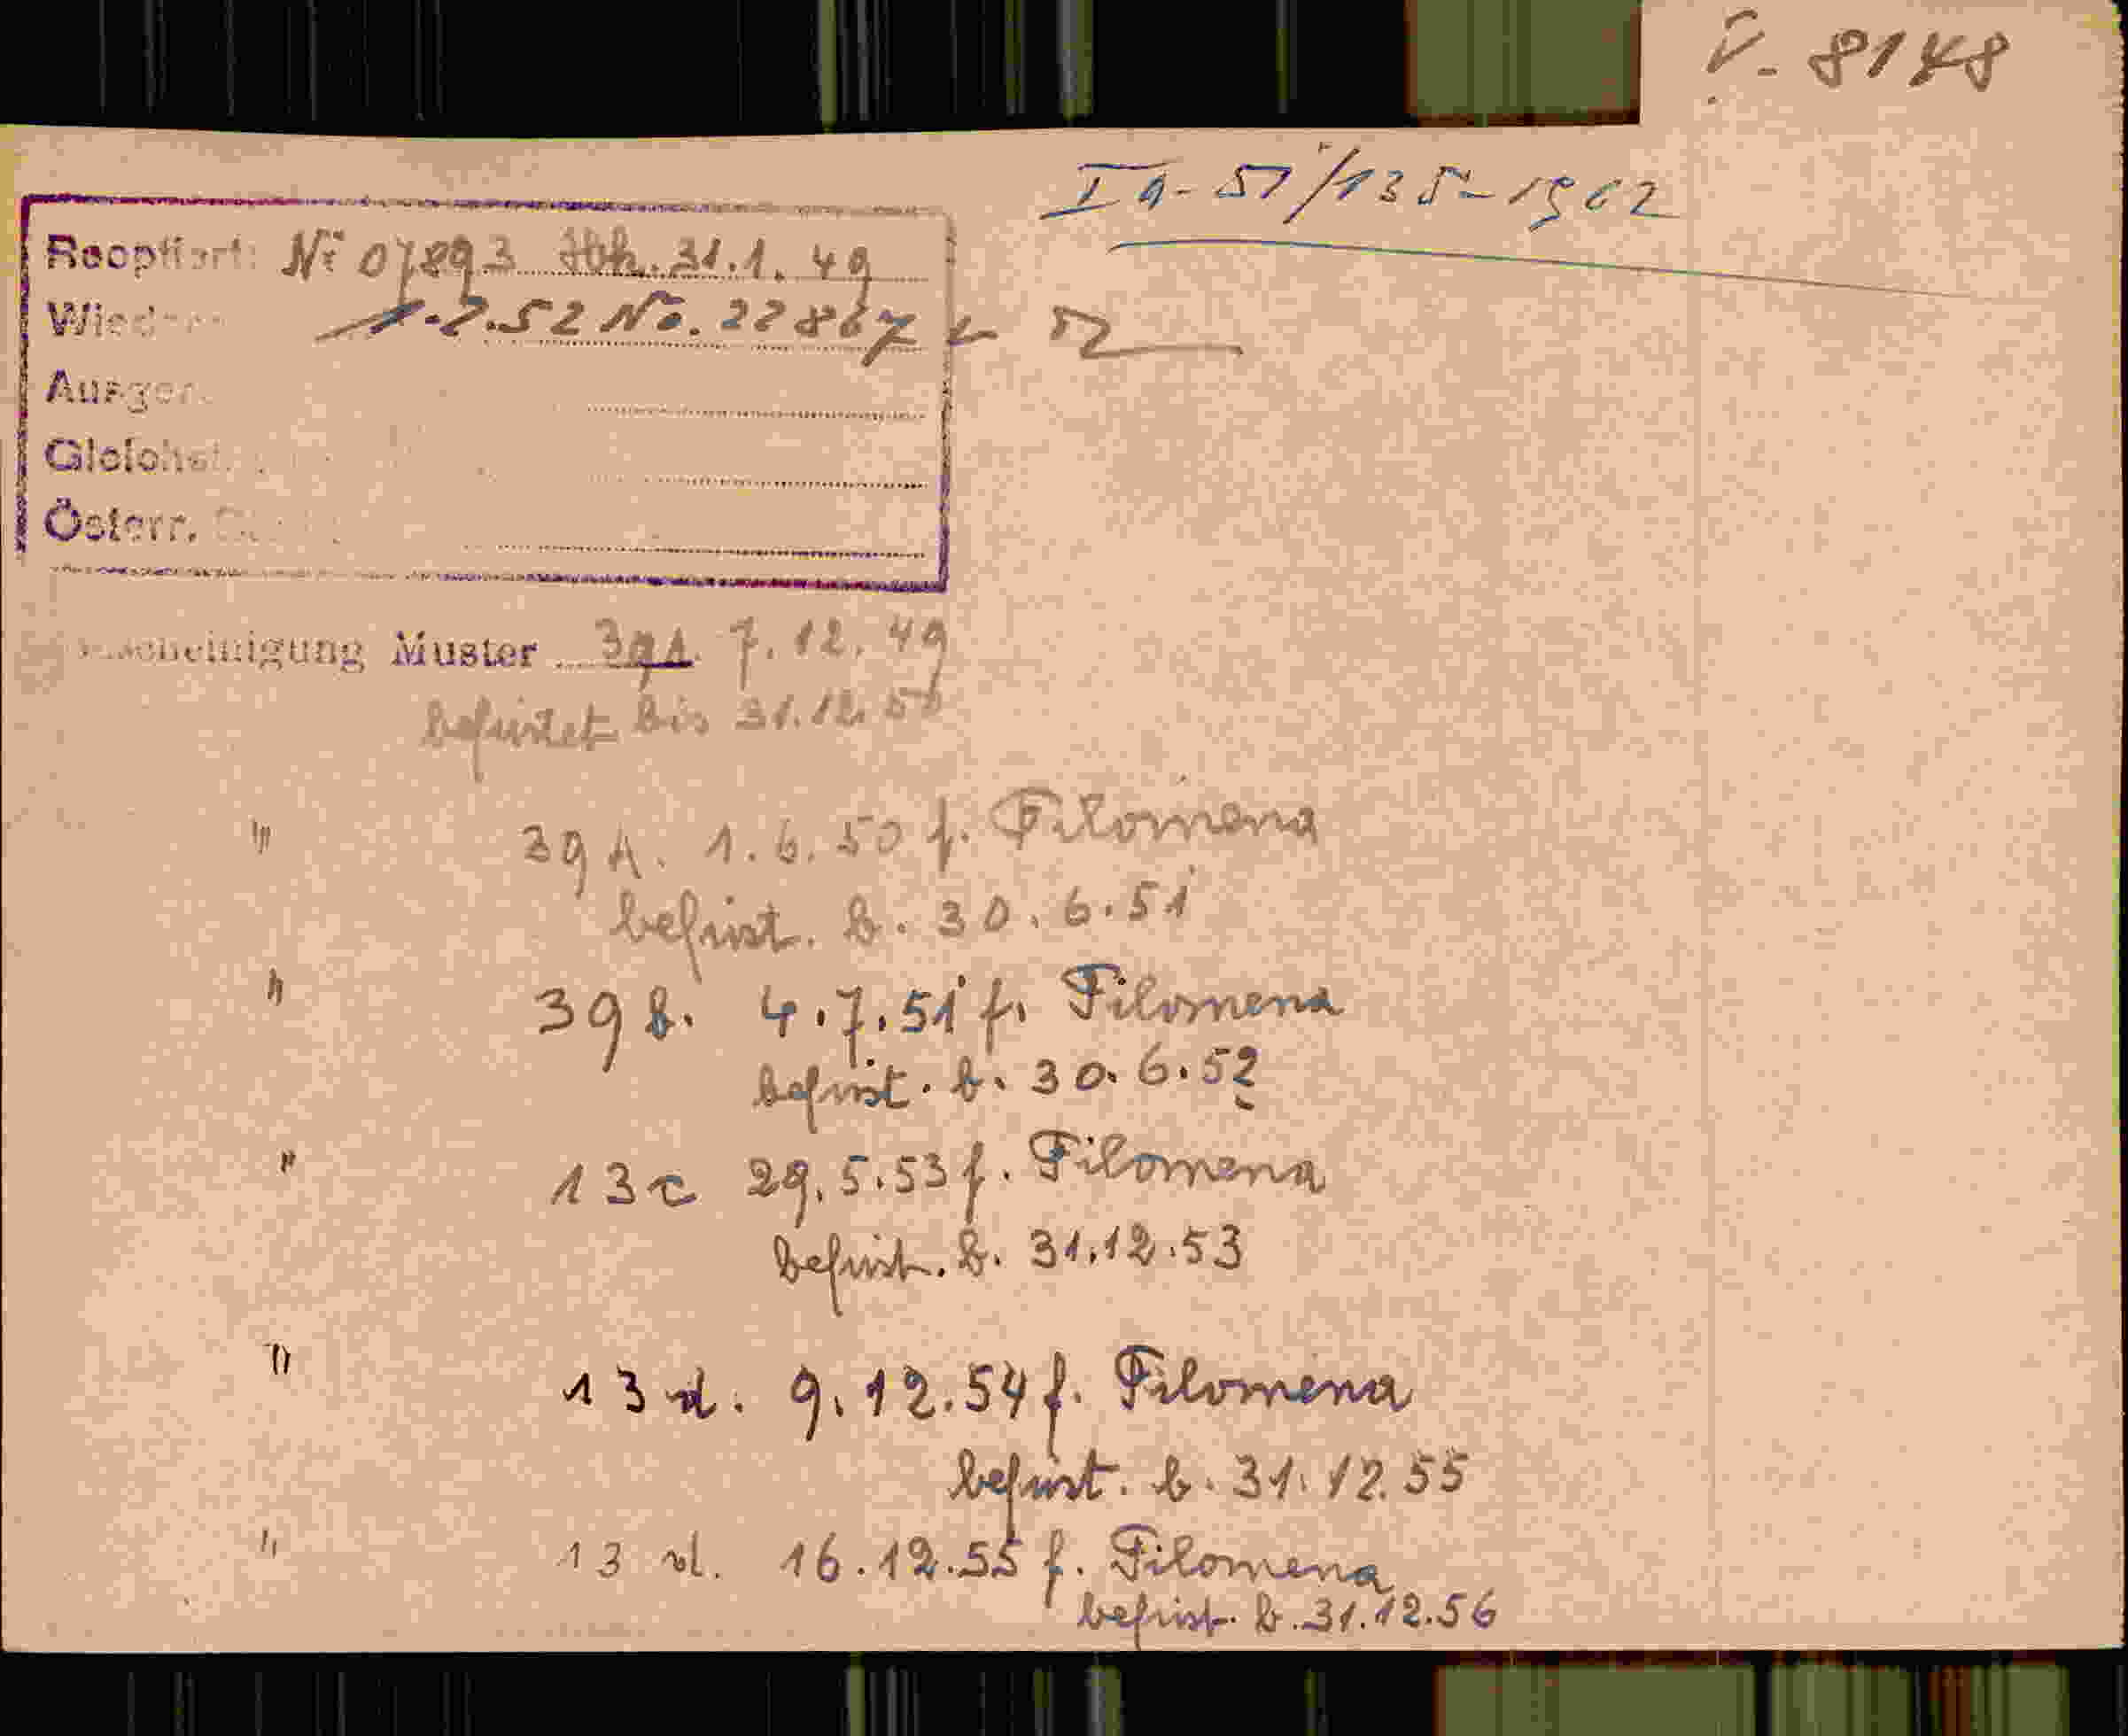 V. 8148
Ia-51/135-1962
Reoptiert: Nr 07893 Ibk. 31.1.49
1.7.52 No. 22867
Österr.
Bescheinigung Muster 39A. 7.12.49
befristet bis 31.12.50
" 39 A. 1.6.50 f. Filomena
befrist. b. 30.6.51
" 39 b. 4.7.51 f. Filomena
befrist. b. 30.6.52
" 13 c 29.5.53 f. Filomena
befrist. b. 31.12.53
" 13 d. 9.12.54 f. Filomena
befrist. b. 31.12.55
" 13 d. 16.12.55 f. Filomena
befrist. b. 31.12.56